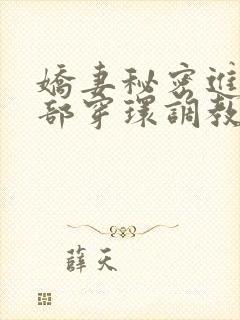 嬌妻秘密進
部穿環調教
薛天